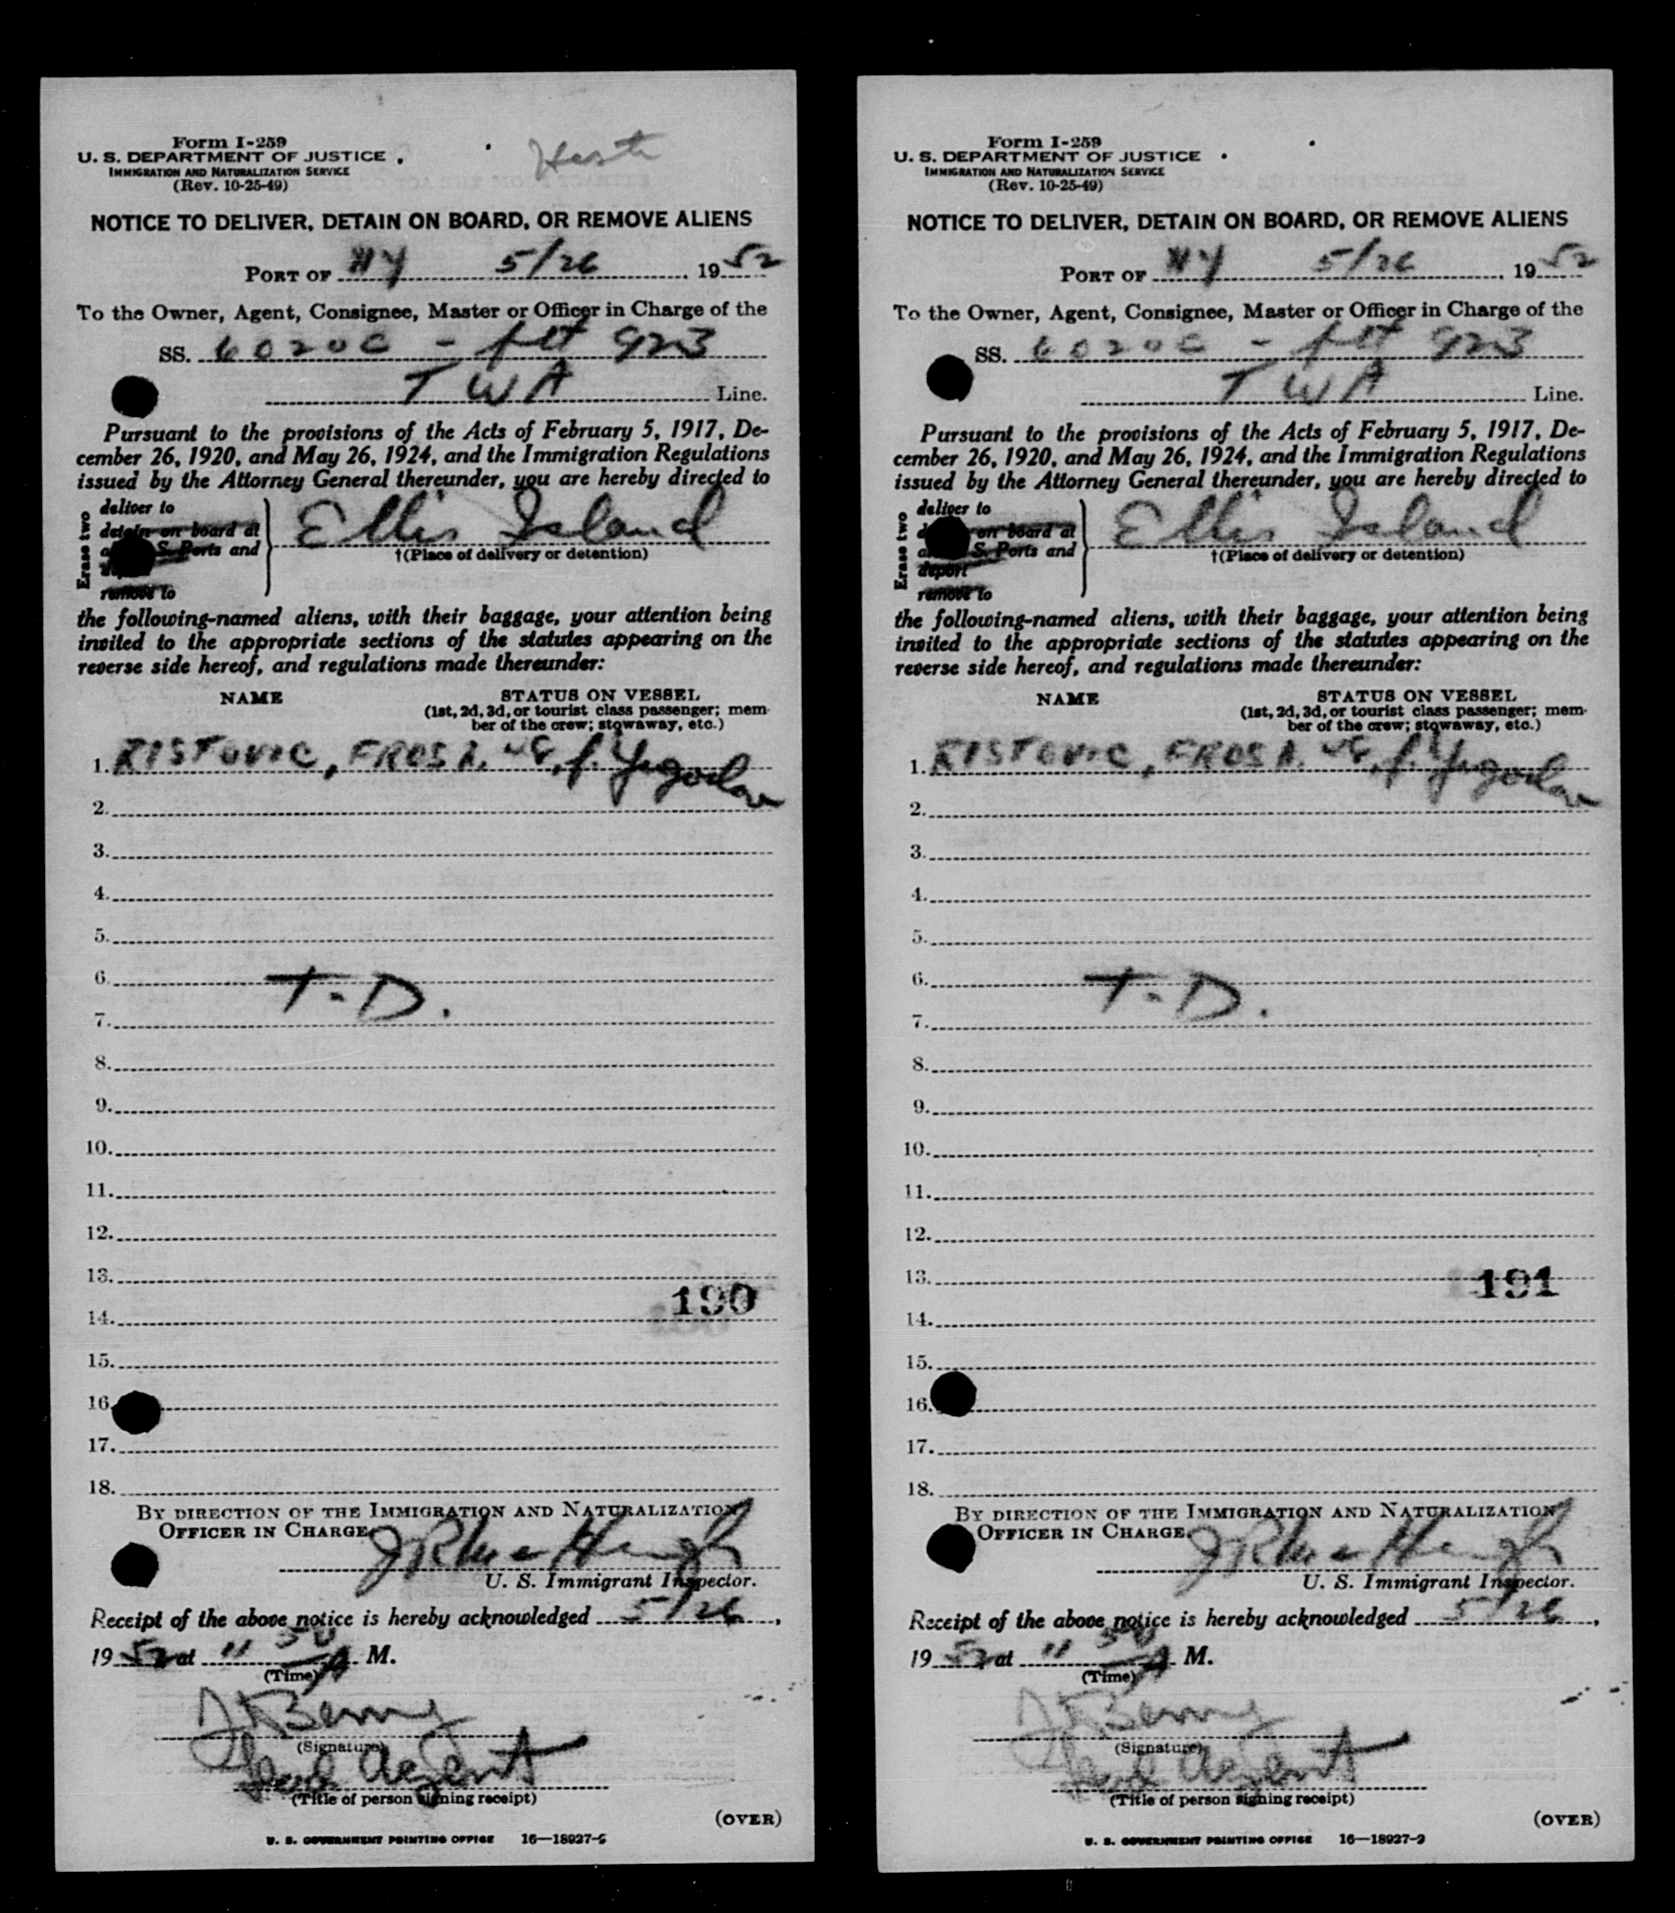 Form I-259
U. S. DEPARTMENT OF JUSTICE
IMMIGRATION AND NATURALIZATION SERVICE
(Rev. 10-25-49)
NOTICE TO DELIVER, DETAIN ON BOARD, OR REMOVE ALIENS
PORT OF NY 5/26, 1952
To the Owner, Agent, Consignee, Master or Officer in Charge of the
SS. 6020C - flt 923
TWA Line.
Pursuant to the provisions of the Acts of February 5, 1917, De-
cember 26, 1920, and May 26, 1924, and the Immigration Regulations
issued by the Attorney General thereunder, you are hereby directed to
Erase two
deliver to
detain on board at
S. Ports and
remove to
Ellis Island
†(Place of delivery or detention)
the following-named aliens, with their baggage, your attention being
invited to the appropriate sections of the statutes appearing on the
reverse side hereof, and regulations made thereunder:
NAME
STATUS ON VESSEL
(1st, 2d, 3d, or tourist class passenger; mem-
ber of the crew; stowaway, etc.)
1. RISTOVIC, FROSA. 48, f. Yugoslav
2.
3.
4.
5.
6.
T.D.
7.
8.
9.
10.
11.
12.
13.
190
14.
15.
16.
17.
18.
BY DIRECTION OF THE IMMIGRATION AND NATURALIZATION
OFFICER IN CHARGE.
U. S. Immigrant Inspector.
Receipt of the above notice is hereby acknowledged 5/26,
1952 at 11 50 A M.
(Time)
(Signature)
Agent
(Title of person signing receipt)
(OVER)
U. S. GOVERNMENT PRINTING OFFICE 16—18927-2
Form I-259
U. S. DEPARTMENT OF JUSTICE
IMMIGRATION AND NATURALIZATION SERVICE
(Rev. 10-25-49)
NOTICE TO DELIVER, DETAIN ON BOARD, OR REMOVE ALIENS
PORT OF NY 5/26, 1952
To the Owner, Agent, Consignee, Master or Officer in Charge of the
SS. 6020C - flt 923
TWA Line.
Pursuant to the provisions of the Acts of February 5, 1917, De-
cember 26, 1920, and May 26, 1924, and the Immigration Regulations
issued by the Attorney General thereunder, you are hereby directed to
Erase two
deliver to
on board at
S. Ports and
deport
remove to
Ellis Island
†(Place of delivery or detention)
the following-named aliens, with their baggage, your attention being
invited to the appropriate sections of the statutes appearing on the
reverse side hereof, and regulations made thereunder:
NAME
STATUS ON VESSEL
(1st, 2d, 3d, or tourist class passenger; mem-
ber of the crew; stowaway, etc.)
1. RISTOVIC, FROSA. 48, f. Yugoslav
2.
3.
4.
5.
6.
T.D.
7.
8.
9.
10.
11.
12.
13.
191
14.
15.
16.
17.
18.
BY DIRECTION OF THE IMMIGRATION AND NATURALIZATION
OFFICER IN CHARGE.
U. S. Immigrant Inspector.
Receipt of the above notice is hereby acknowledged 5/26,
1952 at 11 50 A M.
(Time)
(Signature)
Agent
(Title of person signing receipt)
(OVER)
U. S. GOVERNMENT PRINTING OFFICE 16—18927-2